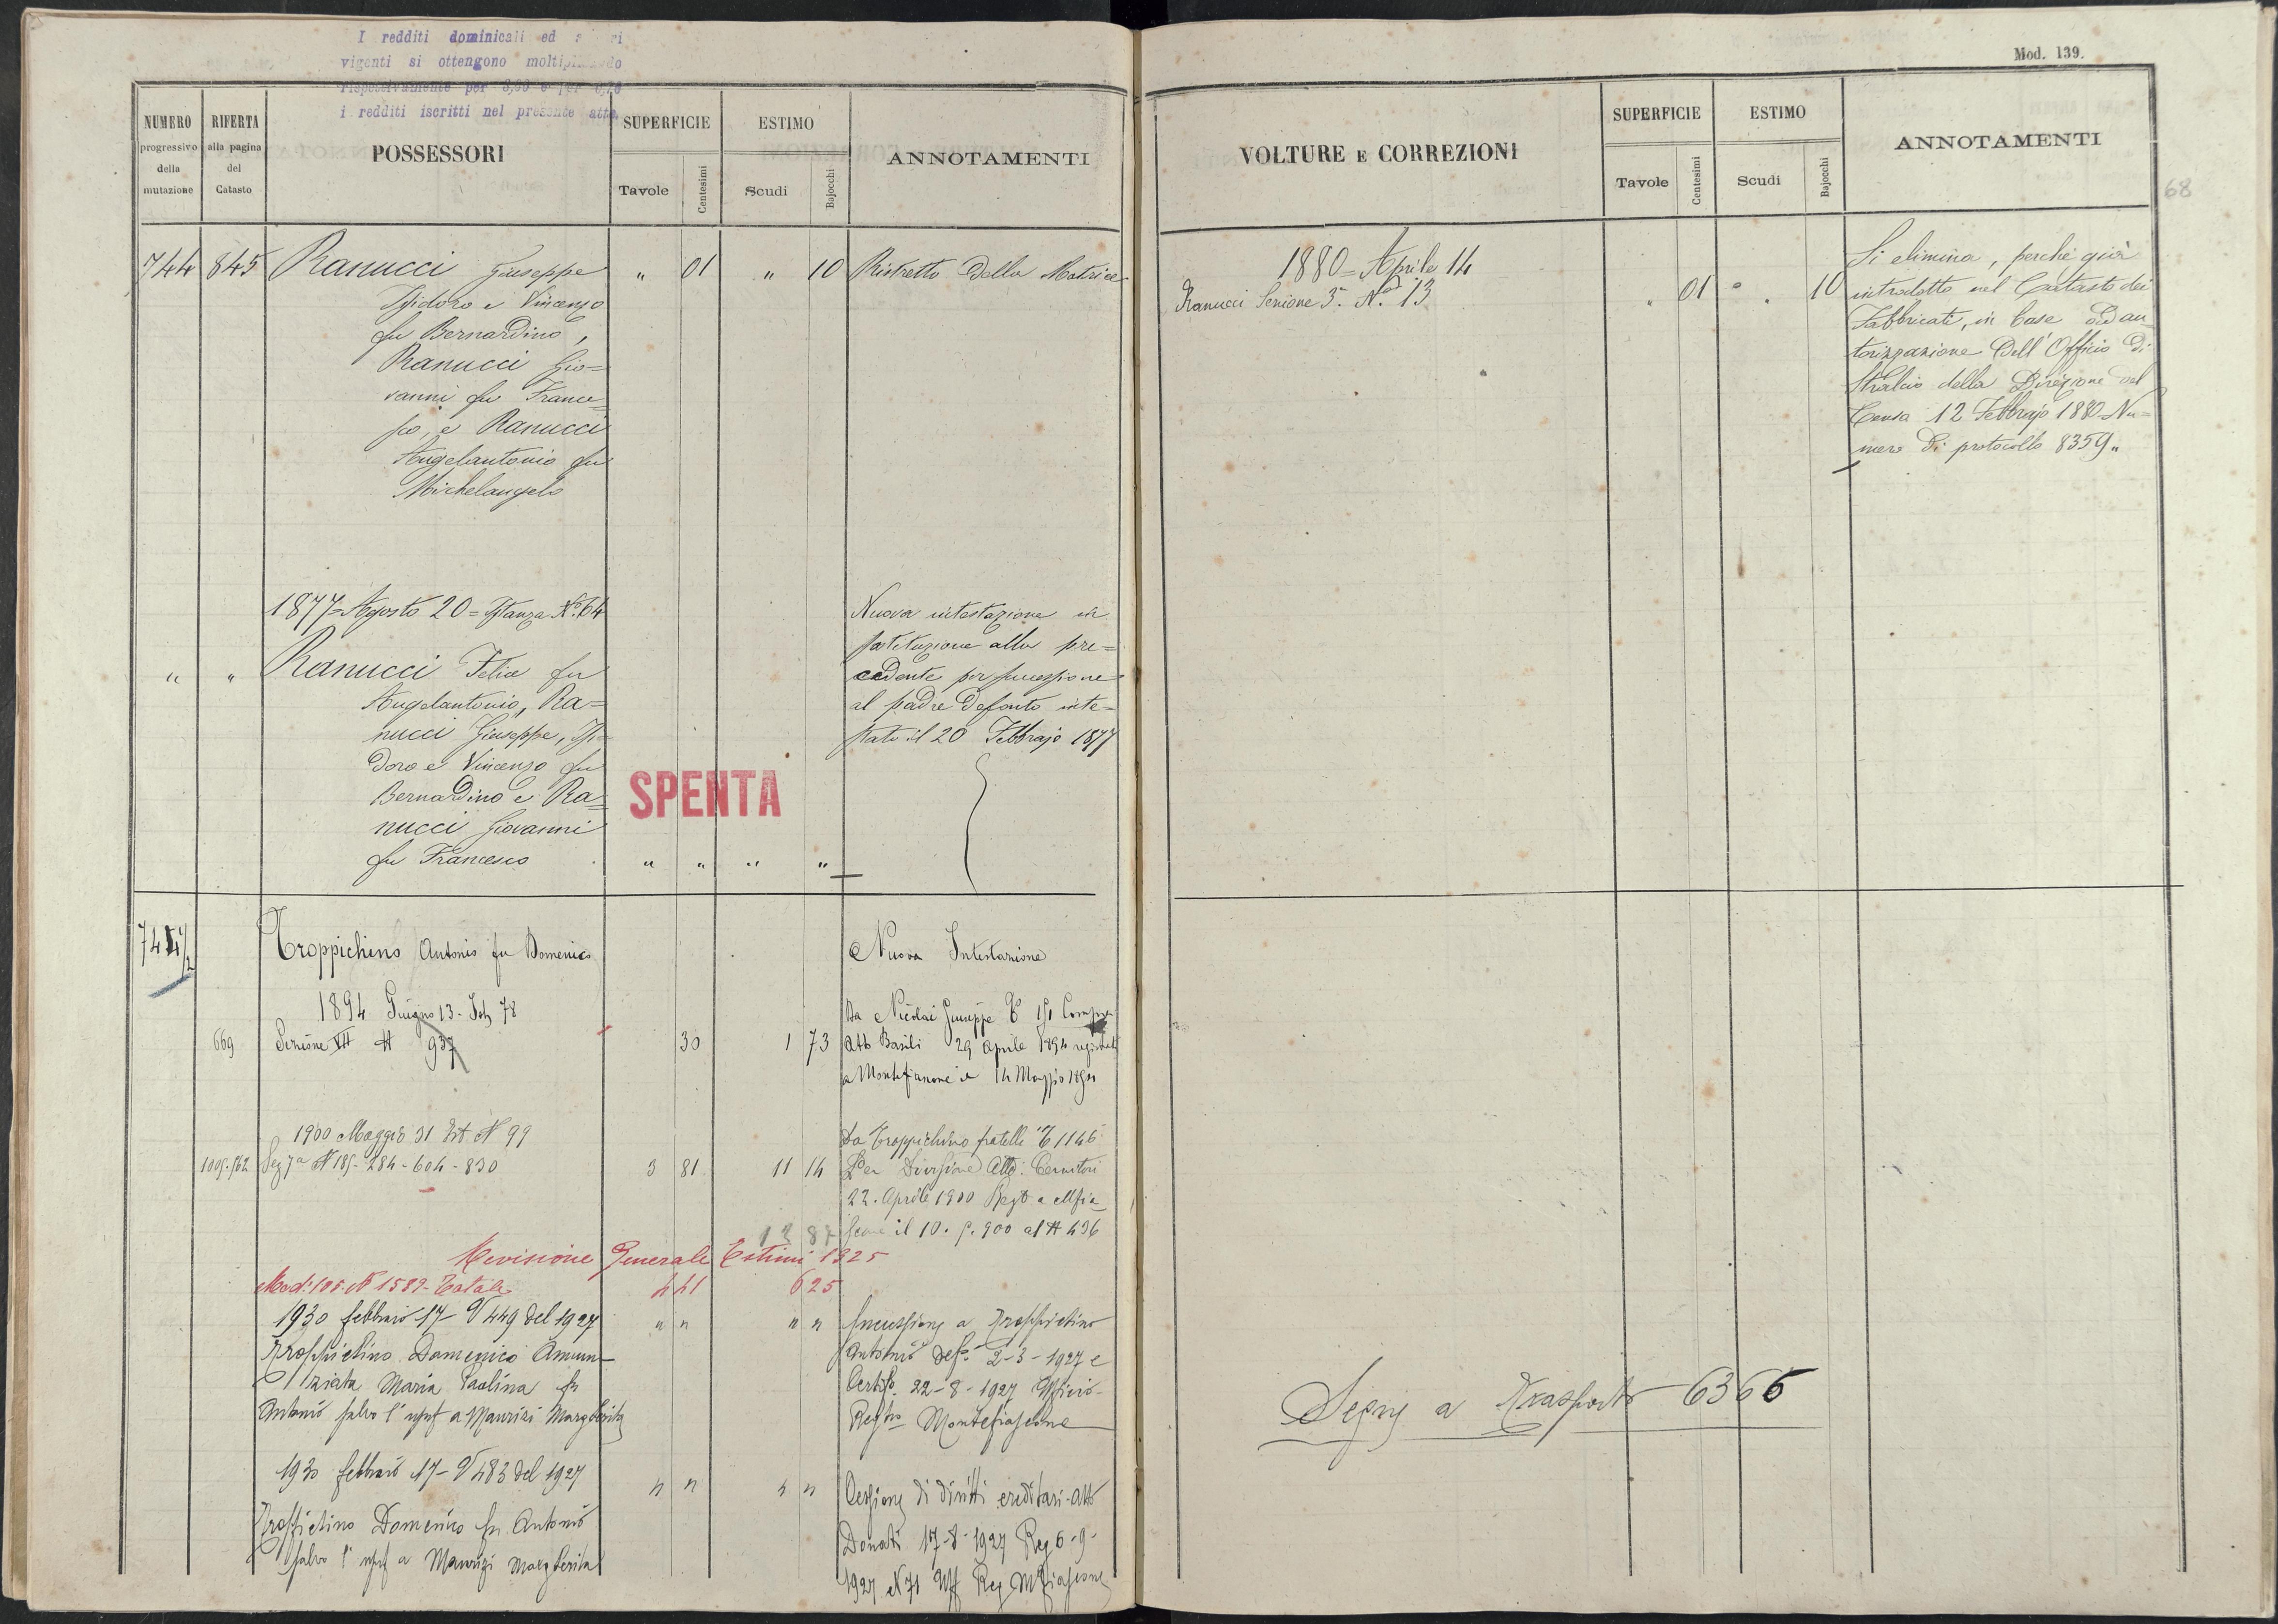 I redditi dominicali ed
vigenti si ottengono
rispettivamente per
i redditi iscritti nel presente atto
Mod. 139.
68
NUMERO progressivo della mutazione
RIFERTA alla pagina del Catasto
POSSESSORI
SUPERFICIE
Tavole Centesimi
ESTIMO
Scudi Bajocchi
ANNOTAMENTI
VOLTURE E CORREZIONI
SUPERFICIE
Tavole Centesimi
ESTIMO
Scudi Bajocchi
ANNOTAMENTI
744 845 Ranucci Giuseppe " 01 " 10 Ristretto della Matrice
Isidoro e Vincenzo
fu Bernardino,
Ranucci Gio=
vanni fu France=
sco, e Ranucci
Angelantonio fu
Michelangelo
1880 = Aprile 14
Ranucci Sezione 3ª N.° 13 " 01 " 10
Si elimina, perchè già
introdotto nel Catasto dei
Fabbricati, in base ad au
torizzazione dell'Officio di
Stralcio della Direzione del
Censo 12 Febbrajo 1880 Nu=
mero di protocollo 8359 "
1877 = Agosto 20 = Istanza N.° 64
" " Ranucci Felice fu
Angelantonio, Ra=
nucci Giuseppe, Isi=
doro e Vincenzo fu
Bernardino e Ra=
nucci Giovanni
fu Francesco " " " "
Nuova intestazione in
sostituzione alla pre=
cedente per successione
al padre defonto inte=
stato il 20 Febbrajo 1877
SPENTA
744 1/2 Troppichino Antonio fu Domenico
Nuova Intestazione
1894 Giugno 13 - 78
669 Sezione VII N 937 30 1 73
Da Nicolai Giuseppe
Atto Basili 29 Aprile 1894
a Montefiascone 14 Maggio
1900 Maggio 31 Ist N 99
1005-562 Sez 7ª N 185-284-604-830 3 81 11 14
Da Troppichino fratelli 1146
Per Divisione Atto:
22. Aprile 1900 Regto a Mfia
scone il 10. 5. 900 al N 436
12 87
Revisione Generale Estimi 1925
Mod: 105 N 1589 - Totale 4 41 625
1930 febbraio 17 - V 449 del 1927 " " " "
Troppichino Domenico Annun
ziata Maria Paolina fu
Antonio salvo l'usuf a Maurizi Margherita
Successione a Troppichino
Antonio 2-3-1927 e
Certif. 22-8-1927 Ufficio
Registro Montefiascone
1930 febbraio 17 - V 483 del 1927 " " " "
Troppichino Domenico fu Antonio
salvo l'usuf a Maurizi Margherita
Cessione di diritti ereditari - Atto
Donati 17-8-1927 Reg 6-9-
1927 N 71 Uff Reg Mfiascone
Segue a Trasporto 6366